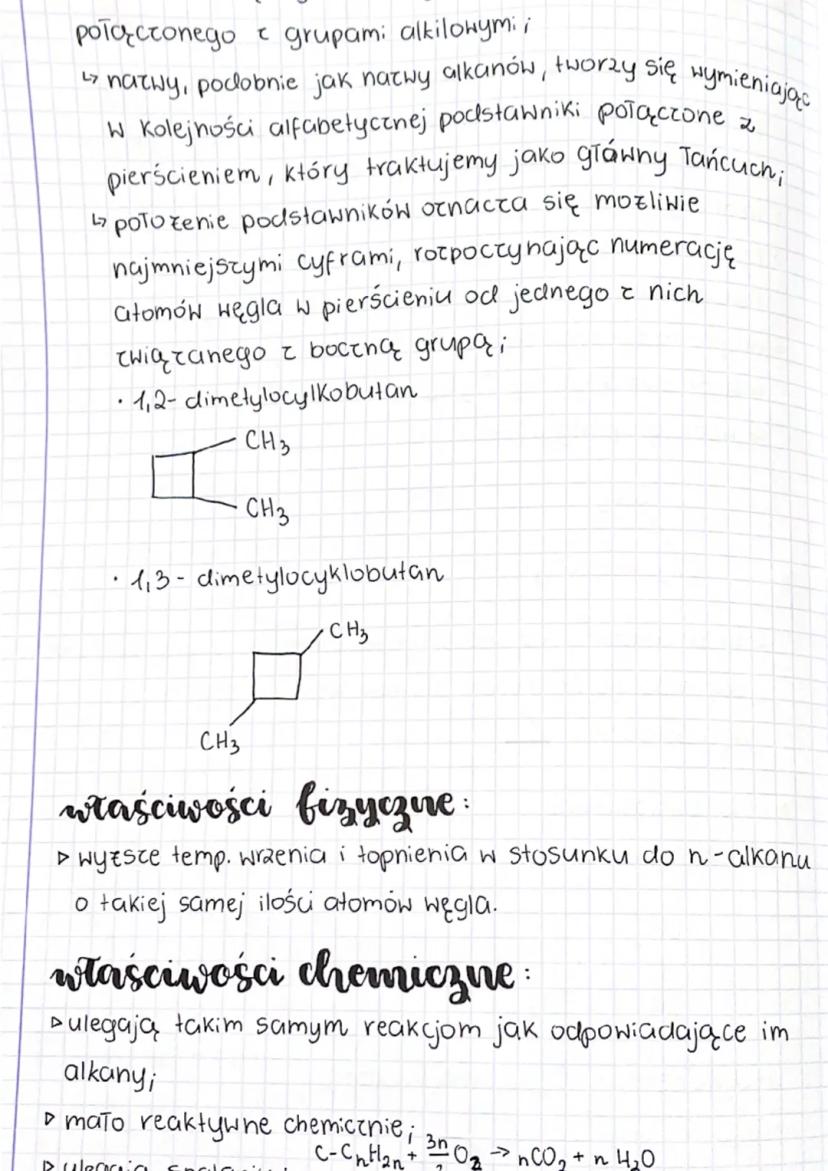 połączonego z grupami alkilowymi;
↳ nazwy, podobnie jak nazwy alkanów, tworzy się wymieniając
w kolejności alfabetycznej podstawniki połączone z
pierścieniem, który traktujemy jako główny łańcuch;
↳ położenie podstawników oznacza się możliwie
najmniejszymi cyframi, rozpoczynając numerację
atomów węgla w pierścieniu od jednego z nich
związanego z boczną grupą;
• 1,2- dimetylocylkobutan
CH₃
CH₃
• 1,3 - dimetylocyklobutan
CH₃
CH₃
właściwości fizyczne:
▷ wyższe temp. wrzenia i topnienia w stosunku do n-alkanu
o takiej samej ilości atomów węgla.
właściwości chemiczne:
▷ ulegają takim samym reakcjom jak odpowiadające im
alkany;
▷ mało reaktywne chemicznie;
▷ ulegają C-CₙH₂ₙ + 3n/2 O₂ → nCO₂ + n H₂O